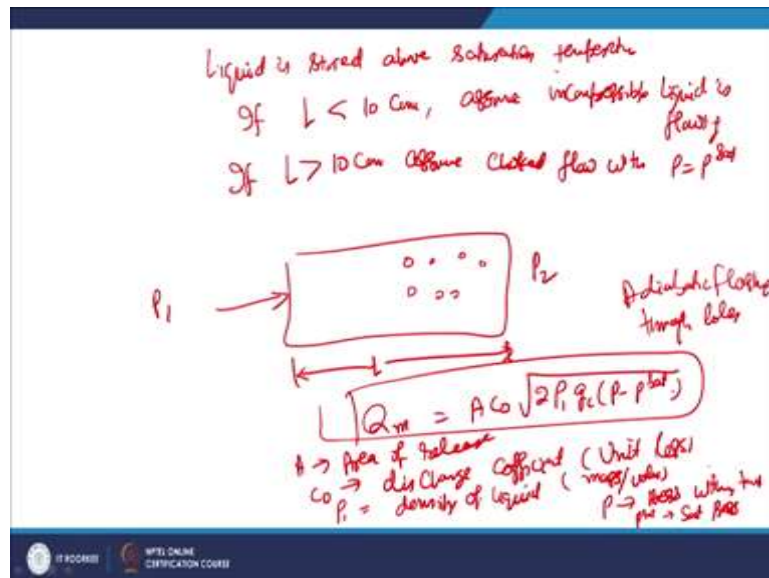 Liquid is stored above saturation
If L < 10 cm, assume incompressible Liquid is flowing
If L > 10 cm assume choked flow with P = P^sat
P1
P2
Adiabatic flashing through holes
L
Qm = A C0 √2ρ1 gc (P - P^sat)
A → Area of release
C0 → discharge coefficient (Unit less)
ρ1 = density of liquid (mass/volume)
P → Press within
→ Sat Press
IIT ROORKEE
NPTEL ONLINE
CERTIFICATION COURSE